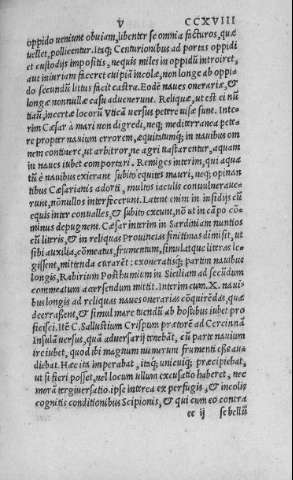 V CCXVIII
oppido ueniunt obuiam, libenter se omnia facturos, quæ
uellet, pollicentur. Itaq; Centurionibus ad portas oppidi
et custodijs impositis, nequis miles in oppidũ introiret,
aut iniuriam faceret cuipiã incolæ, non longe ab oppi-
do secundũ litus facit castra. Eodẽ naues onerariæ, &
longæ nonnullæ casu aduenerunt. Reliquæ, ut est ei nũ
tiatũ, incertæ locorũ Vticã uersus petere uisæ sunt. Inte-
rim Cæsar à mari non digredi, neq; mediterranea pete-
re propter nauium errorem, equitatumq; in nauibus om
nem continere, ut arbitror, ne agri uastarentur, aquam
in naues iubet comportari. Remiges interim, qui aqua-
tũ è nauibus exierant subito equites mauri, neq; opinan
tibus Cæsarianis adorti, multos iaculis conuulnerauе-
runt, nonullos interfecerunt. Latent enim in insidijs cũ
equis inter conualles, & subito exeunt, nõ ut in cãpo cõ-
minus depugnent. Cæsar interim in Sardiniam nuntios
cũ literis, & in reliquas Prouincias finitimas dimisit, ut
sibi auxilia, cõmeatus, frumentum, simulatque literas le-
gissent, mittenda curarẽt: exoneratisq; partim nauibus
longis, Rabirium Posthumium in Siciliam ad secũdum
commeatum accersendum mittit. Interim cum. X. naui-
bus longis ad reliquas naues onerarias cõquirẽdas, quæ
deerrassent, & simul mare tuendũ ab hostibus iubet pro
ficisci. Itẽ C. Sallustium Crispum prætorẽ ad Cercinnã
Insulã uersus, quã aduersarij tenebãt, cũ parte nauium
ire iubet, quod ibi magnum numerum frumenti eẽ au-
diebat. Hæc ita imperabat, itaq; unicuiq; præcipiebat,
ut si fieri posset, nel locum ullum excusatio haberet, nec
morã tergiuersatio. ipse interea ex perfugis, & incolis
cognitis conditionibus Scipionis, & qui cum eo contra
ee ij se bellũ